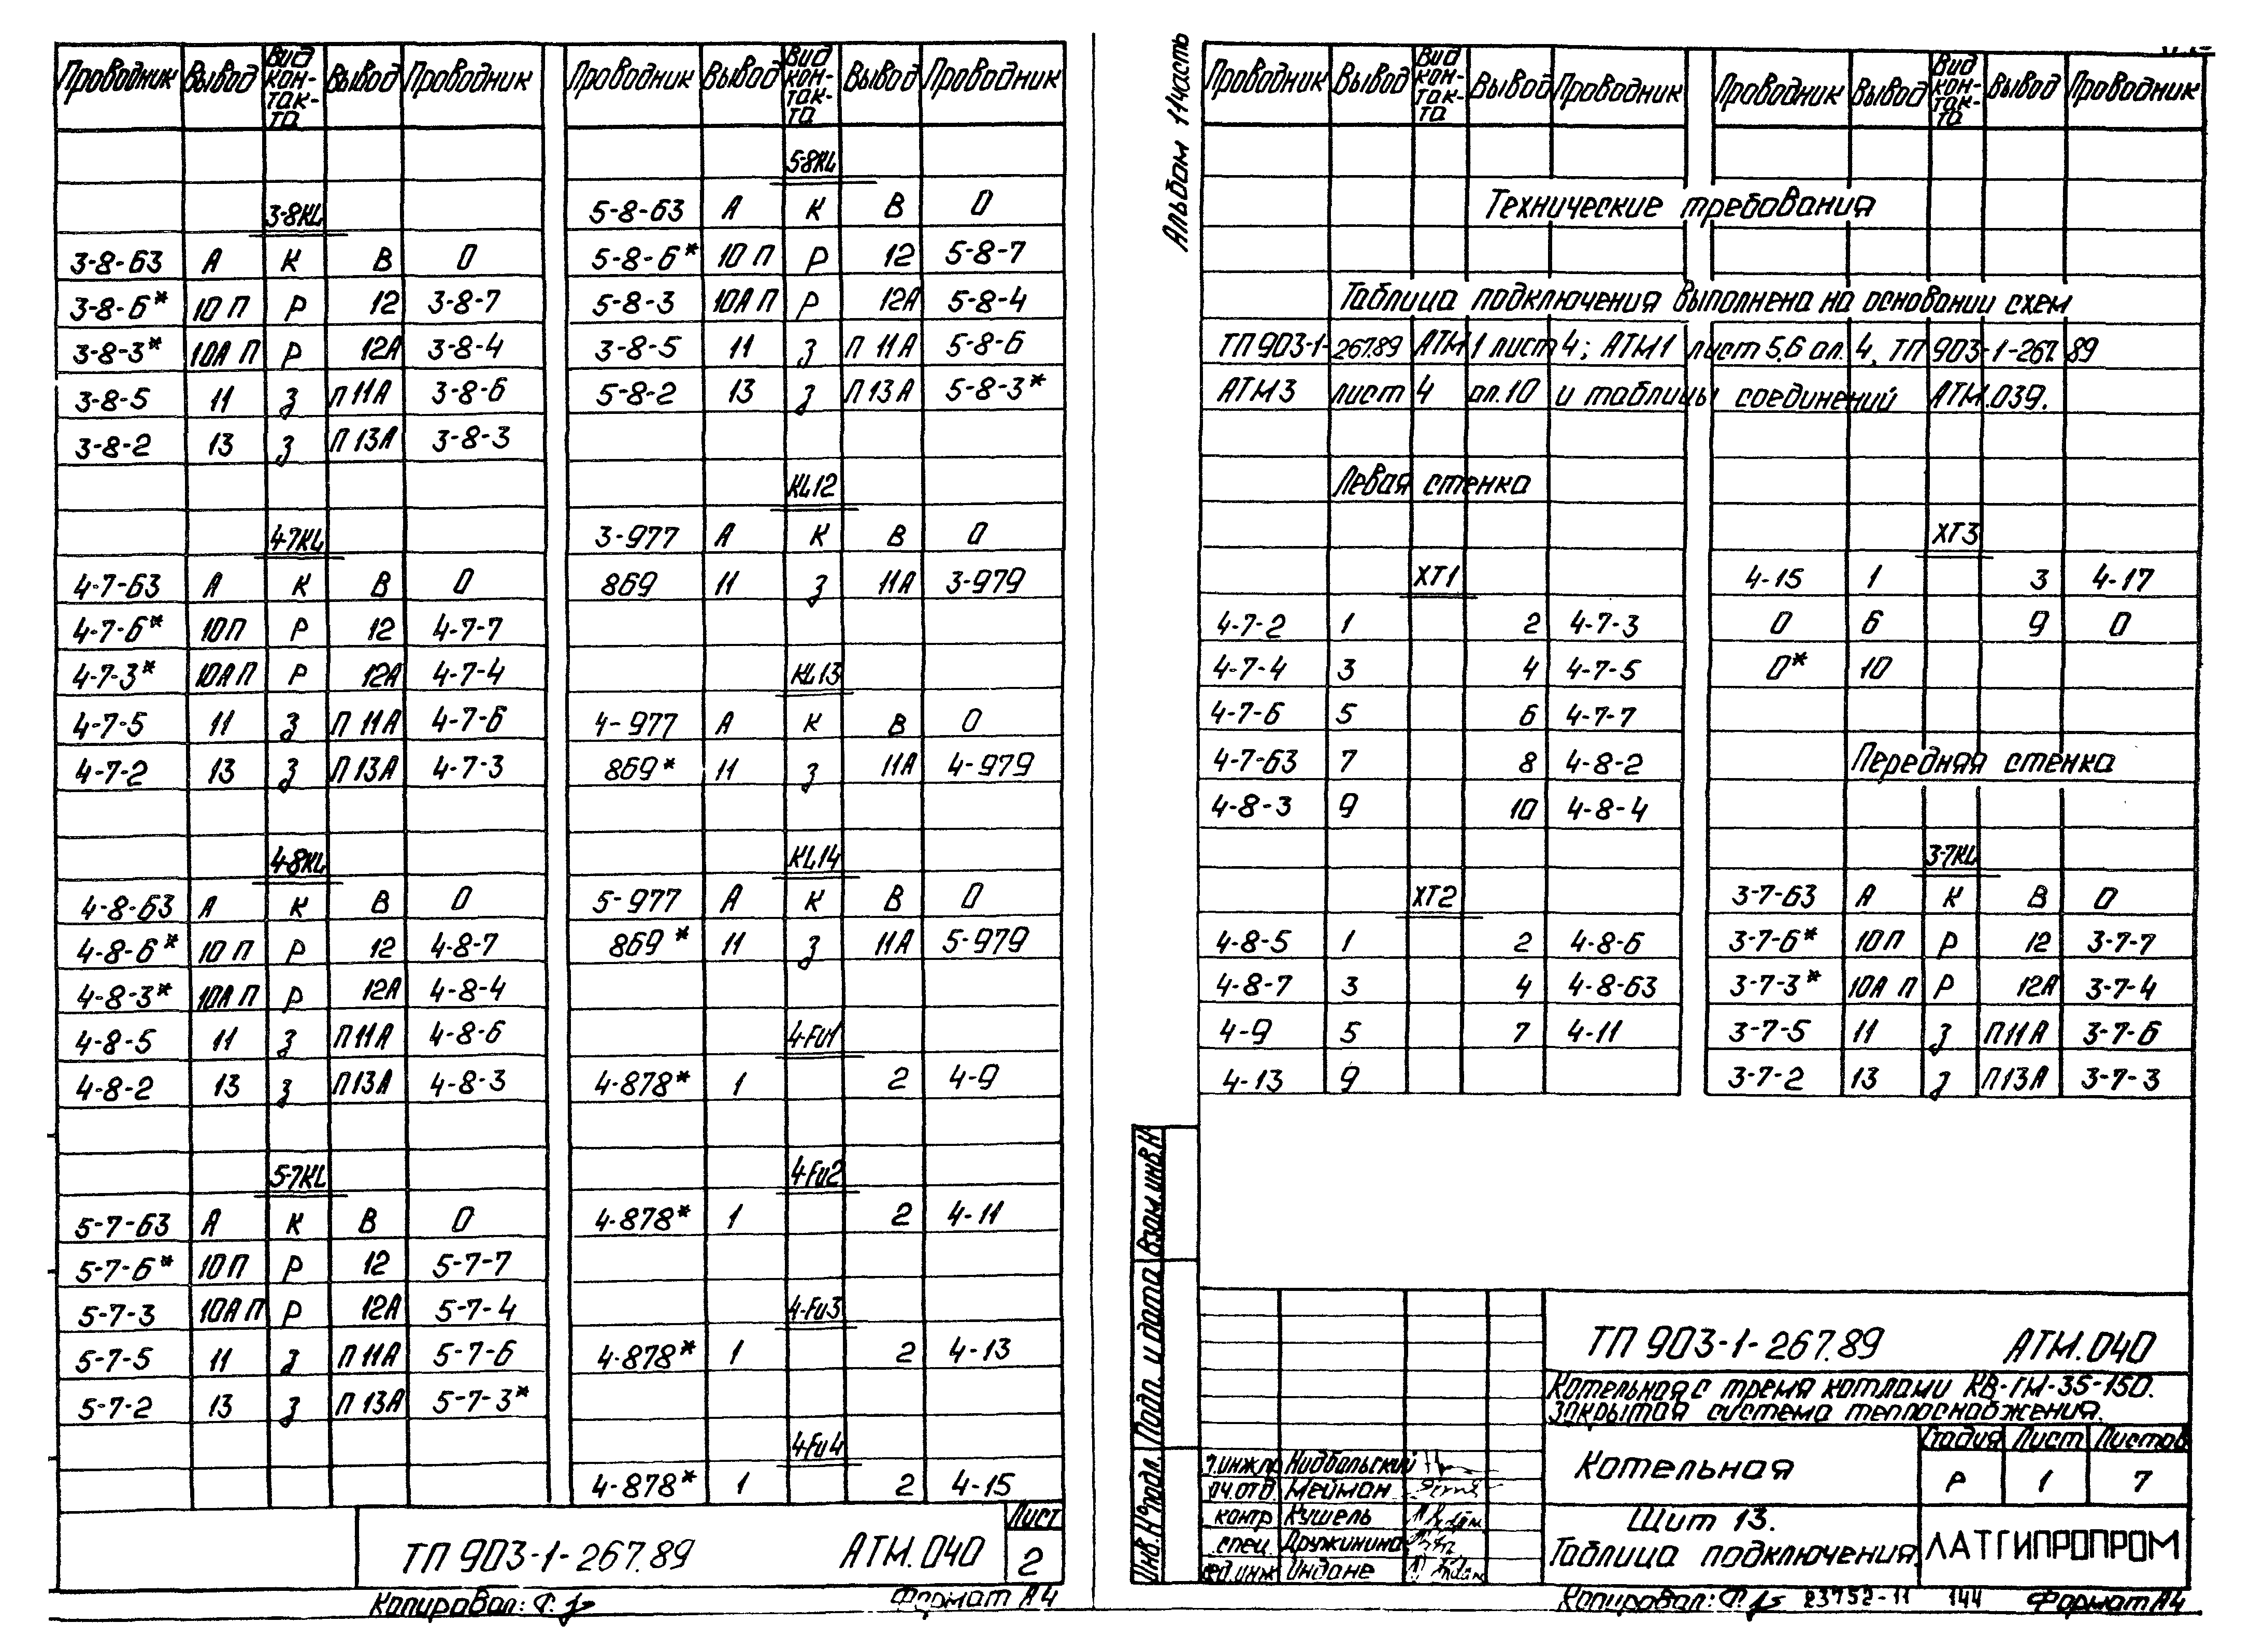 Проводник Вывод Вид кон-так-та Вывод Проводник
3-8KL
3-8-63 А К В 0
3-8-6* 10 П Р 12 3-8-7
3-8-3* 10А П Р 12А 3-8-4
3-8-5 11 З П 11А 3-8-6
3-8-2 13 З П 13А 3-8-3
4-7KL
4-7-63 А К В 0
4-7-6* 10П Р 12 4-7-7
4-7-3* 10А П Р 12А 4-7-4
4-7-5 11 З П 11А 4-7-6
4-7-2 13 З П 13А 4-7-3
4-8KL
4-8-63 А К В 0
4-8-6* 10 П Р 12 4-8-7
4-8-3* 10А П Р 12А 4-8-4
4-8-5 11 З П 11А 4-8-6
4-8-2 13 З П13А 4-8-3
5-7KL
5-7-63 А К В 0
5-7-6* 10П Р 12 5-7-7
5-7-3 10А П Р 12А 5-7-4
5-7-5 11 З П 11А 5-7-6
5-7-2 13 З П 13А 5-7-3*
Проводник Вывод Вид кон-так-та Вывод Проводник
5-8KL
5-8-63 А К В 0
5-8-6* 10 П Р 12 5-8-7
5-8-3 10А П Р 12А 5-8-4
5-8-5 11 З П 11А 5-8-6
5-8-2 13 З П 13А 5-8-3*
KL12
3-977 А К В 0
869 11 З 11А 3-979
KL13
4-977 А К В 0
869* 11 З 11А 4-979
KL14
5-977 А К В 0
869* 11 З 11А 5-979
4-Fu1
4-878* 1 2 4-9
4-Fu2
4-878* 1 2 4-11
4-Fu3
4-878* 1 2 4-13
4-Fu4
4-878* 1 2 4-15
ТП 903-1-267.89 АТМ.040
Лист
2
Копировал:
Формат А4
Альбом 11 часть
Проводник Вывод Вид кон-так-та Вывод Проводник
Проводник Вывод Вид кон-так-та Вывод Проводник
Технические требования
Таблица подключения выполнена на основании схем
ТП 903-1-267.89 АТМ1 лист 4; АТМ1 лист 5,6 ал. 4, ТП 903-1-267.89
АТМ3 лист 4 ал. 10 и таблицы соединений АТМ.039.
Левая стенка
XT1
4-7-2 1 2 4-7-3
4-7-4 3 4 4-7-5
4-7-6 5 6 4-7-7
4-7-63 7 8 4-8-2
4-8-3 9 10 4-8-4
XT2
4-8-5 1 2 4-8-6
4-8-7 3 4 4-8-63
4-9 5 7 4-11
4-13 9
XT3
4-15 1 3 4-17
0 6 9 0
0* 10
Передняя стенка
3-7KL
3-7-63 А К В 0
3-7-6* 10П Р 12 3-7-7
3-7-3* 10А П Р 12А 3-7-4
3-7-5 11 З П 11А 3-7-6
3-7-2 13 З П13А 3-7-3
Инв.№подл. Подп. и дата Взам.инв.№
ТП 903-1-267.89 АТМ.040
Котельная с тремя котлами КВ-ГМ-35-150.
Закрытая система теплоснабжения.
Котельная
Стадия Лист Листов
Р 1 7
Щит 13.
Таблица подключения
ЛАТГИПРОПРОМ
Нидбальский
Мейман
контр Кушель
спец. Дружинина
Индане
Копировал: 23752-11 144 Формат А4